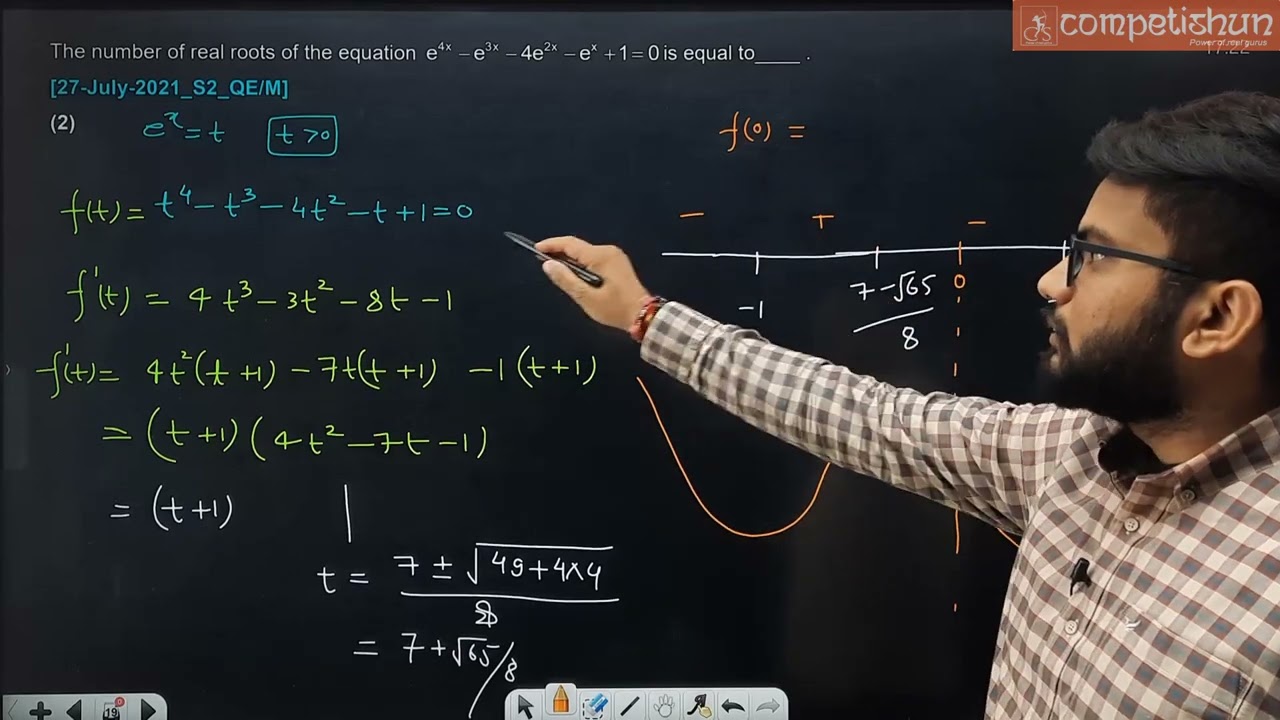 competishun
Power of real gurus
The number of real roots of the equation e^{4x} – e^{3x} – 4e^{2x} – e^x + 1 = 0 is equal to____ .
[27-July-2021_S2_QE/M]
(2)
e^x = t
t > 0
f(0) =
f(t) = t^4 – t^3 – 4t^2 – t + 1 = 0
– + –
-1
7 - √65
8
0
f'(t) = 4t^3 – 3t^2 – 8t – 1
f'(t) = 4t^2(t + 1) – 7t(t + 1) – 1(t + 1)
= (t + 1)(4t^2 – 7t – 1)
= (t + 1)
t = 7 ± √49 + 4×4
8
= 7 + √65/8
19